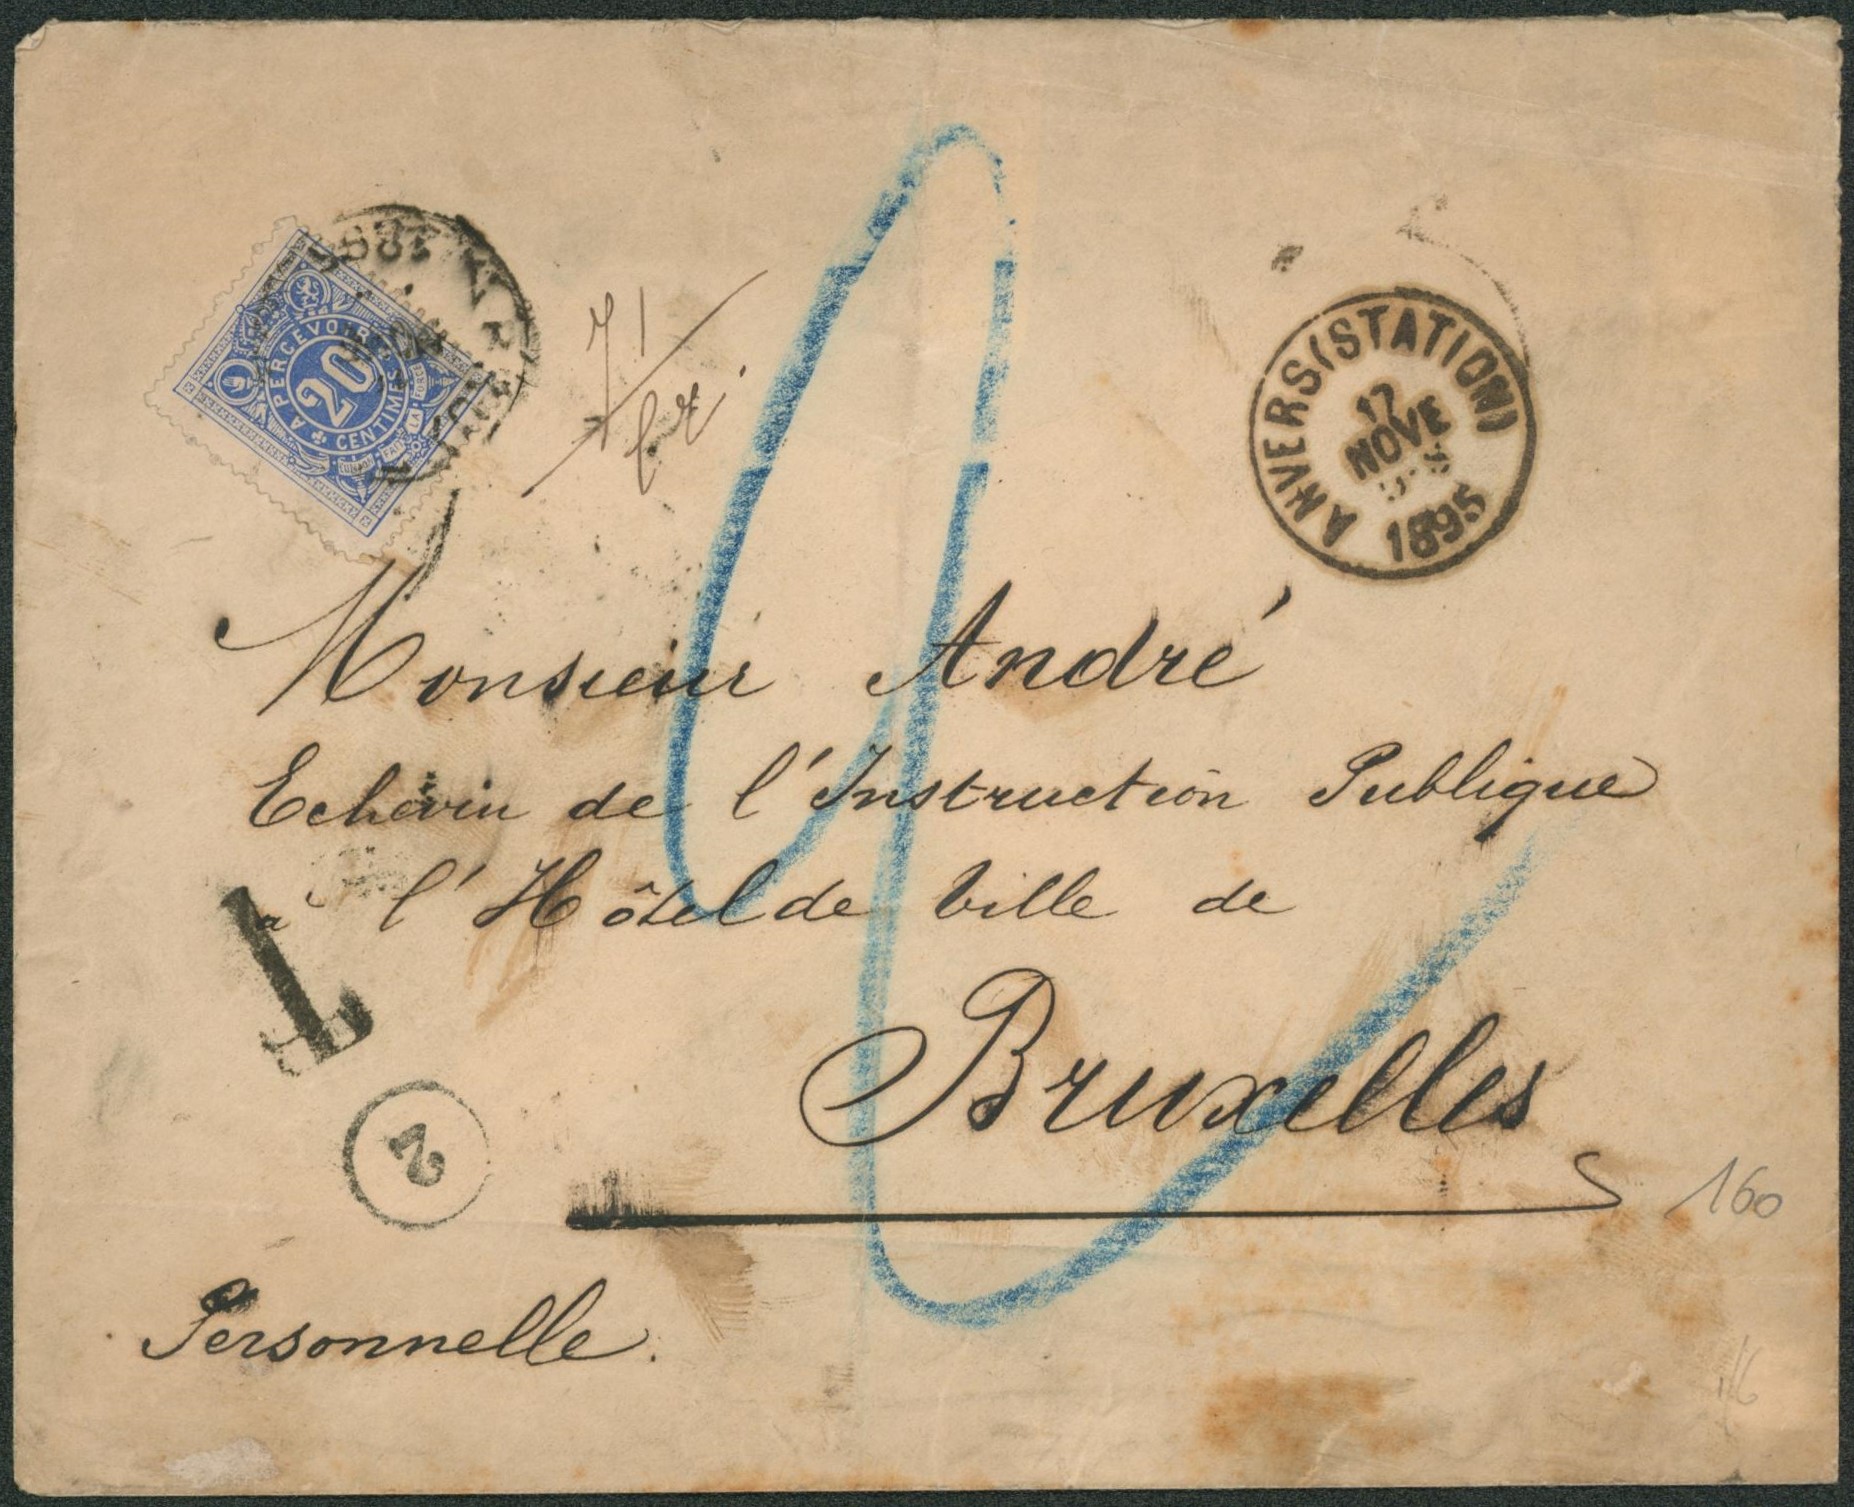 A PERCEVOIR
20
CENTIMES
L'UNION FAIT LA FORCE
ANVERS (STATION)
17
NOVE
1895
Monsieur André
Echevin de l'Instruction Publique
à l'Hôtel de Ville de
Bruxelles
T
2
160
Personnelle.